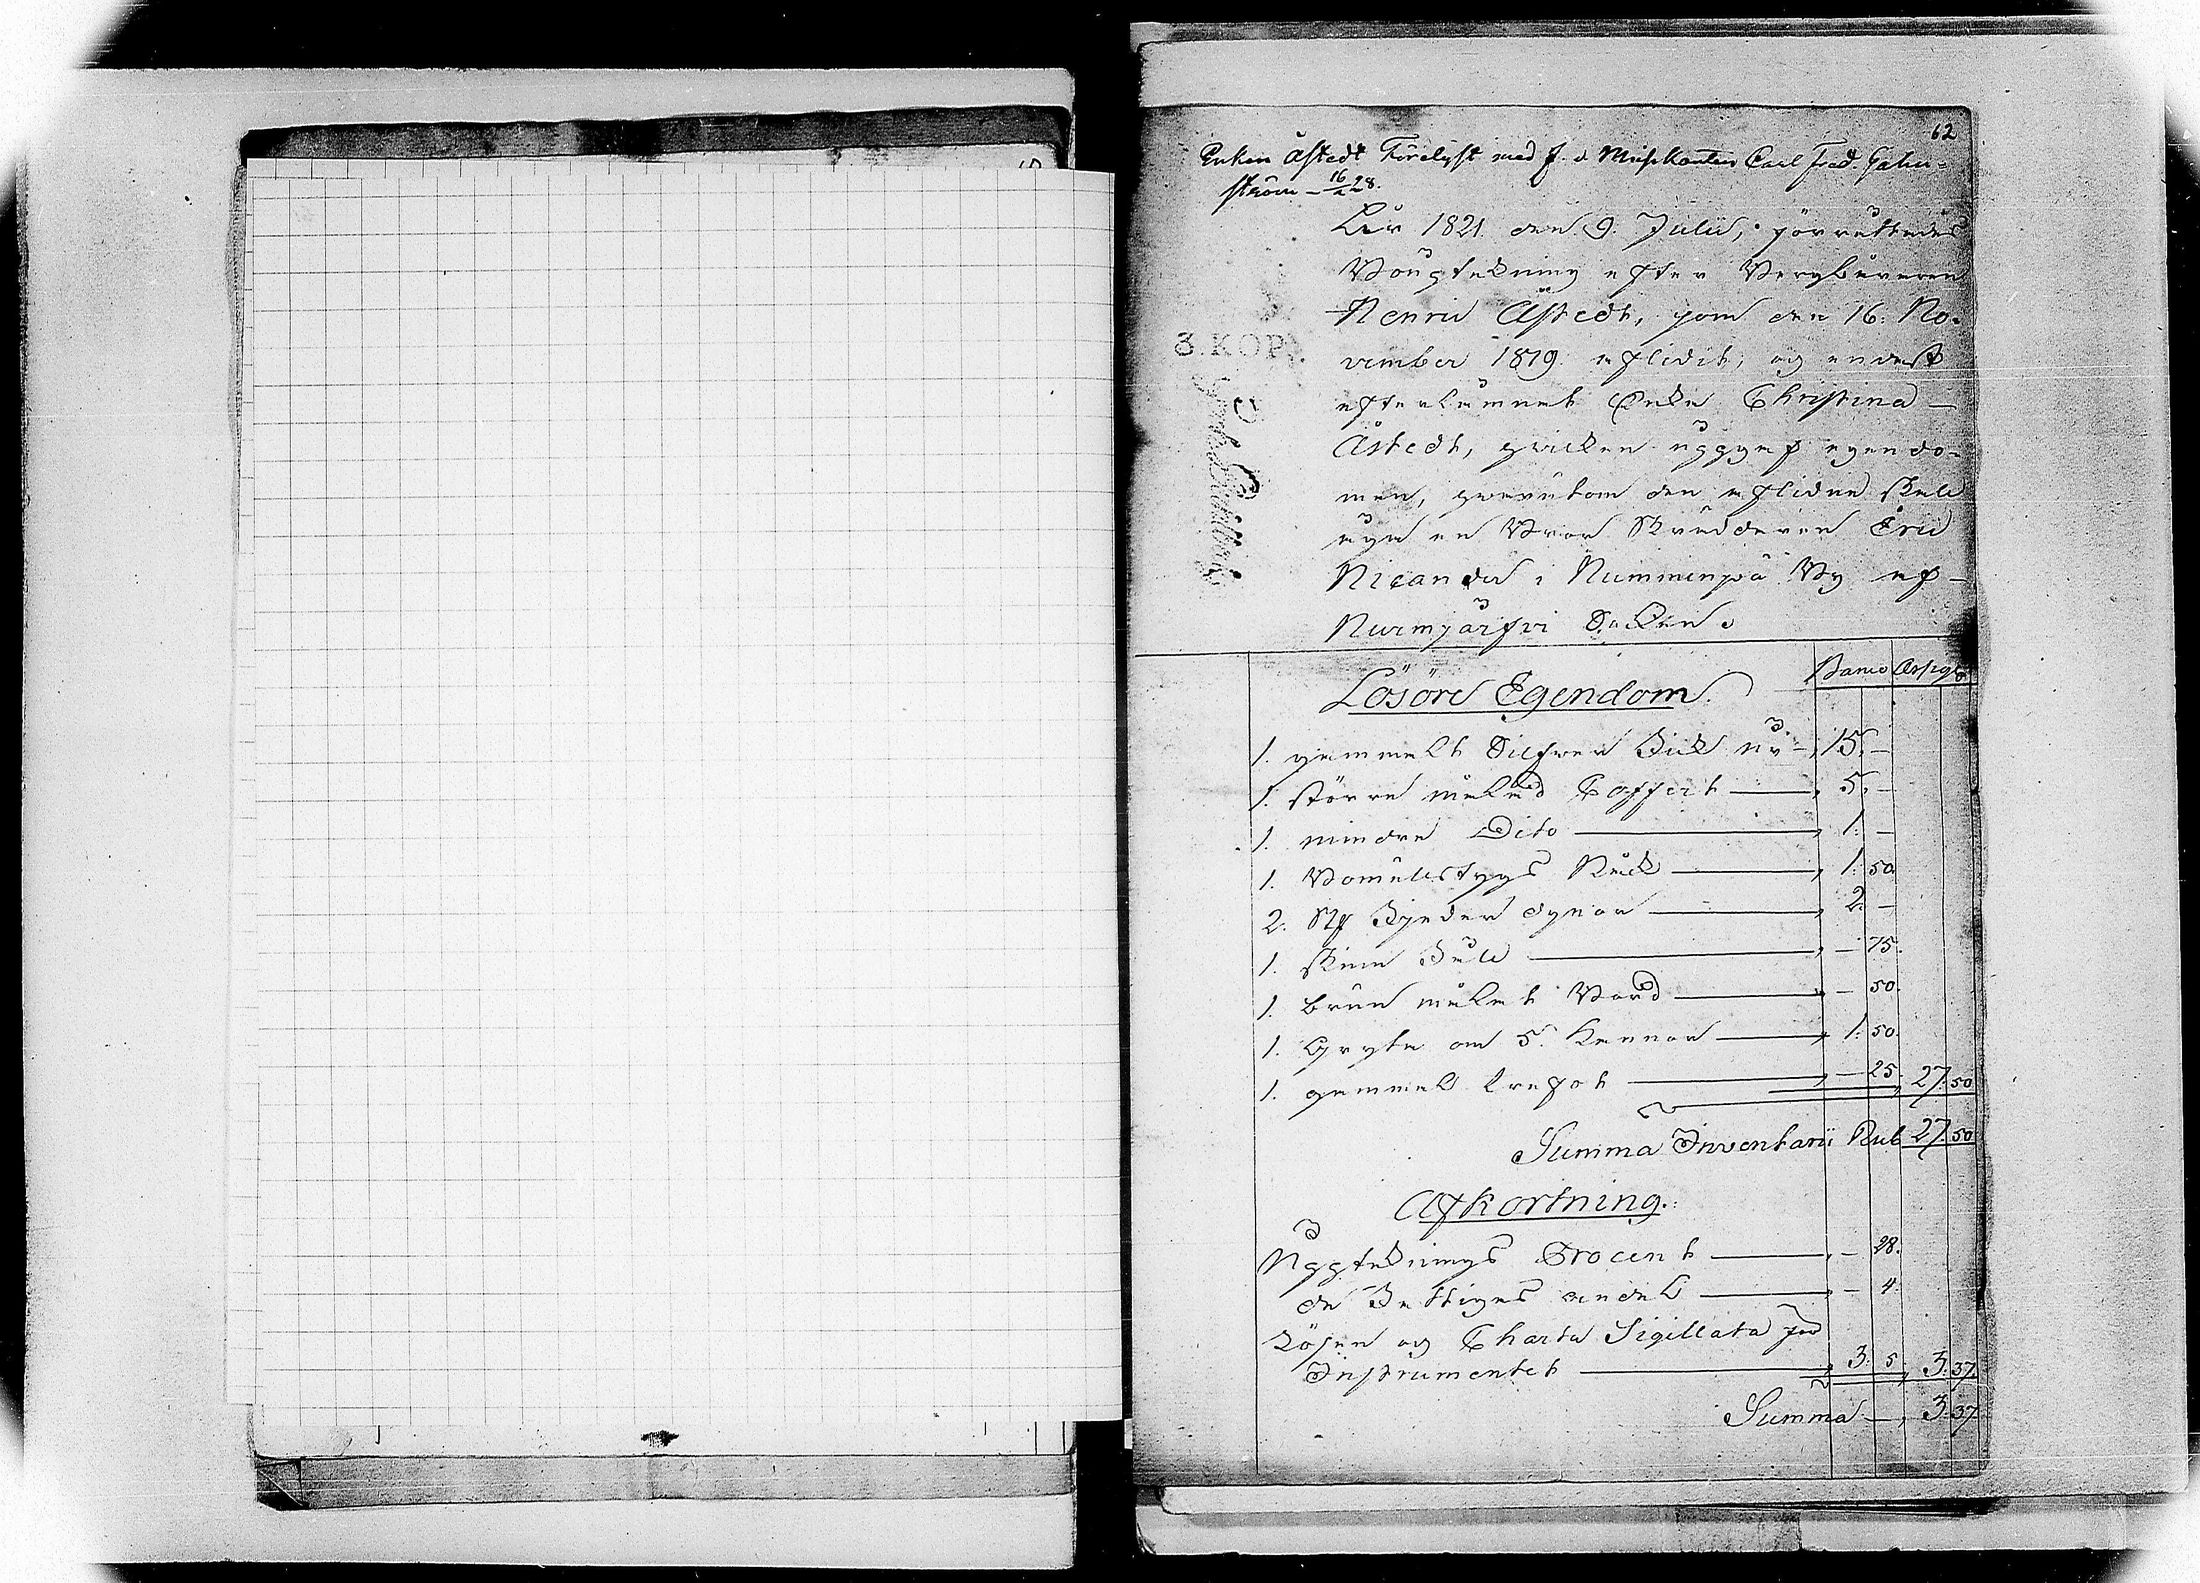 62
Enkan Åstedt Förelyst med f. d. Musikanten Carl Fred. Holm=
ström - 16/2 28.
År 1821 den 9. Julii, förrättades
Bouptekning efter Bergbäraren
Henric Åstedt, som den 16. No-
vember 1819 aflidit, og endast
efterlämnat Enka Christina
Åstedt, hvilken uppgaf egendo-
men, hvarutom den aflidne skall
äga en Bror Skräddaren Eric
Nicander i Numminpää By af
Nurmijärfvi Sokken.
3. KOP.
Banco Assign
Lösöre Egendom.
1. gammalt Silfver Fick ur 15. -
1. större målad Coffert 5. -
1. mindre Dito 1. -
1. Vomullstygs Råck 1. 50.
2. St Fjeder dynor 2. -
1. skinn Fäll - 75.
1. brun målat Bord - 50.
1. Gryta om 5. Kannor 1. 50.
1. gammal trefot - 25. 27. 50
Summa Inventarii Rub 27. 50
Afkortning.
Uppteknings Procent - 28.
de Fattiges andel - 4.
Lösen og Charta Sigillata för
Instrumentet 3. 5. 3. 37.
Summa 3. 37.